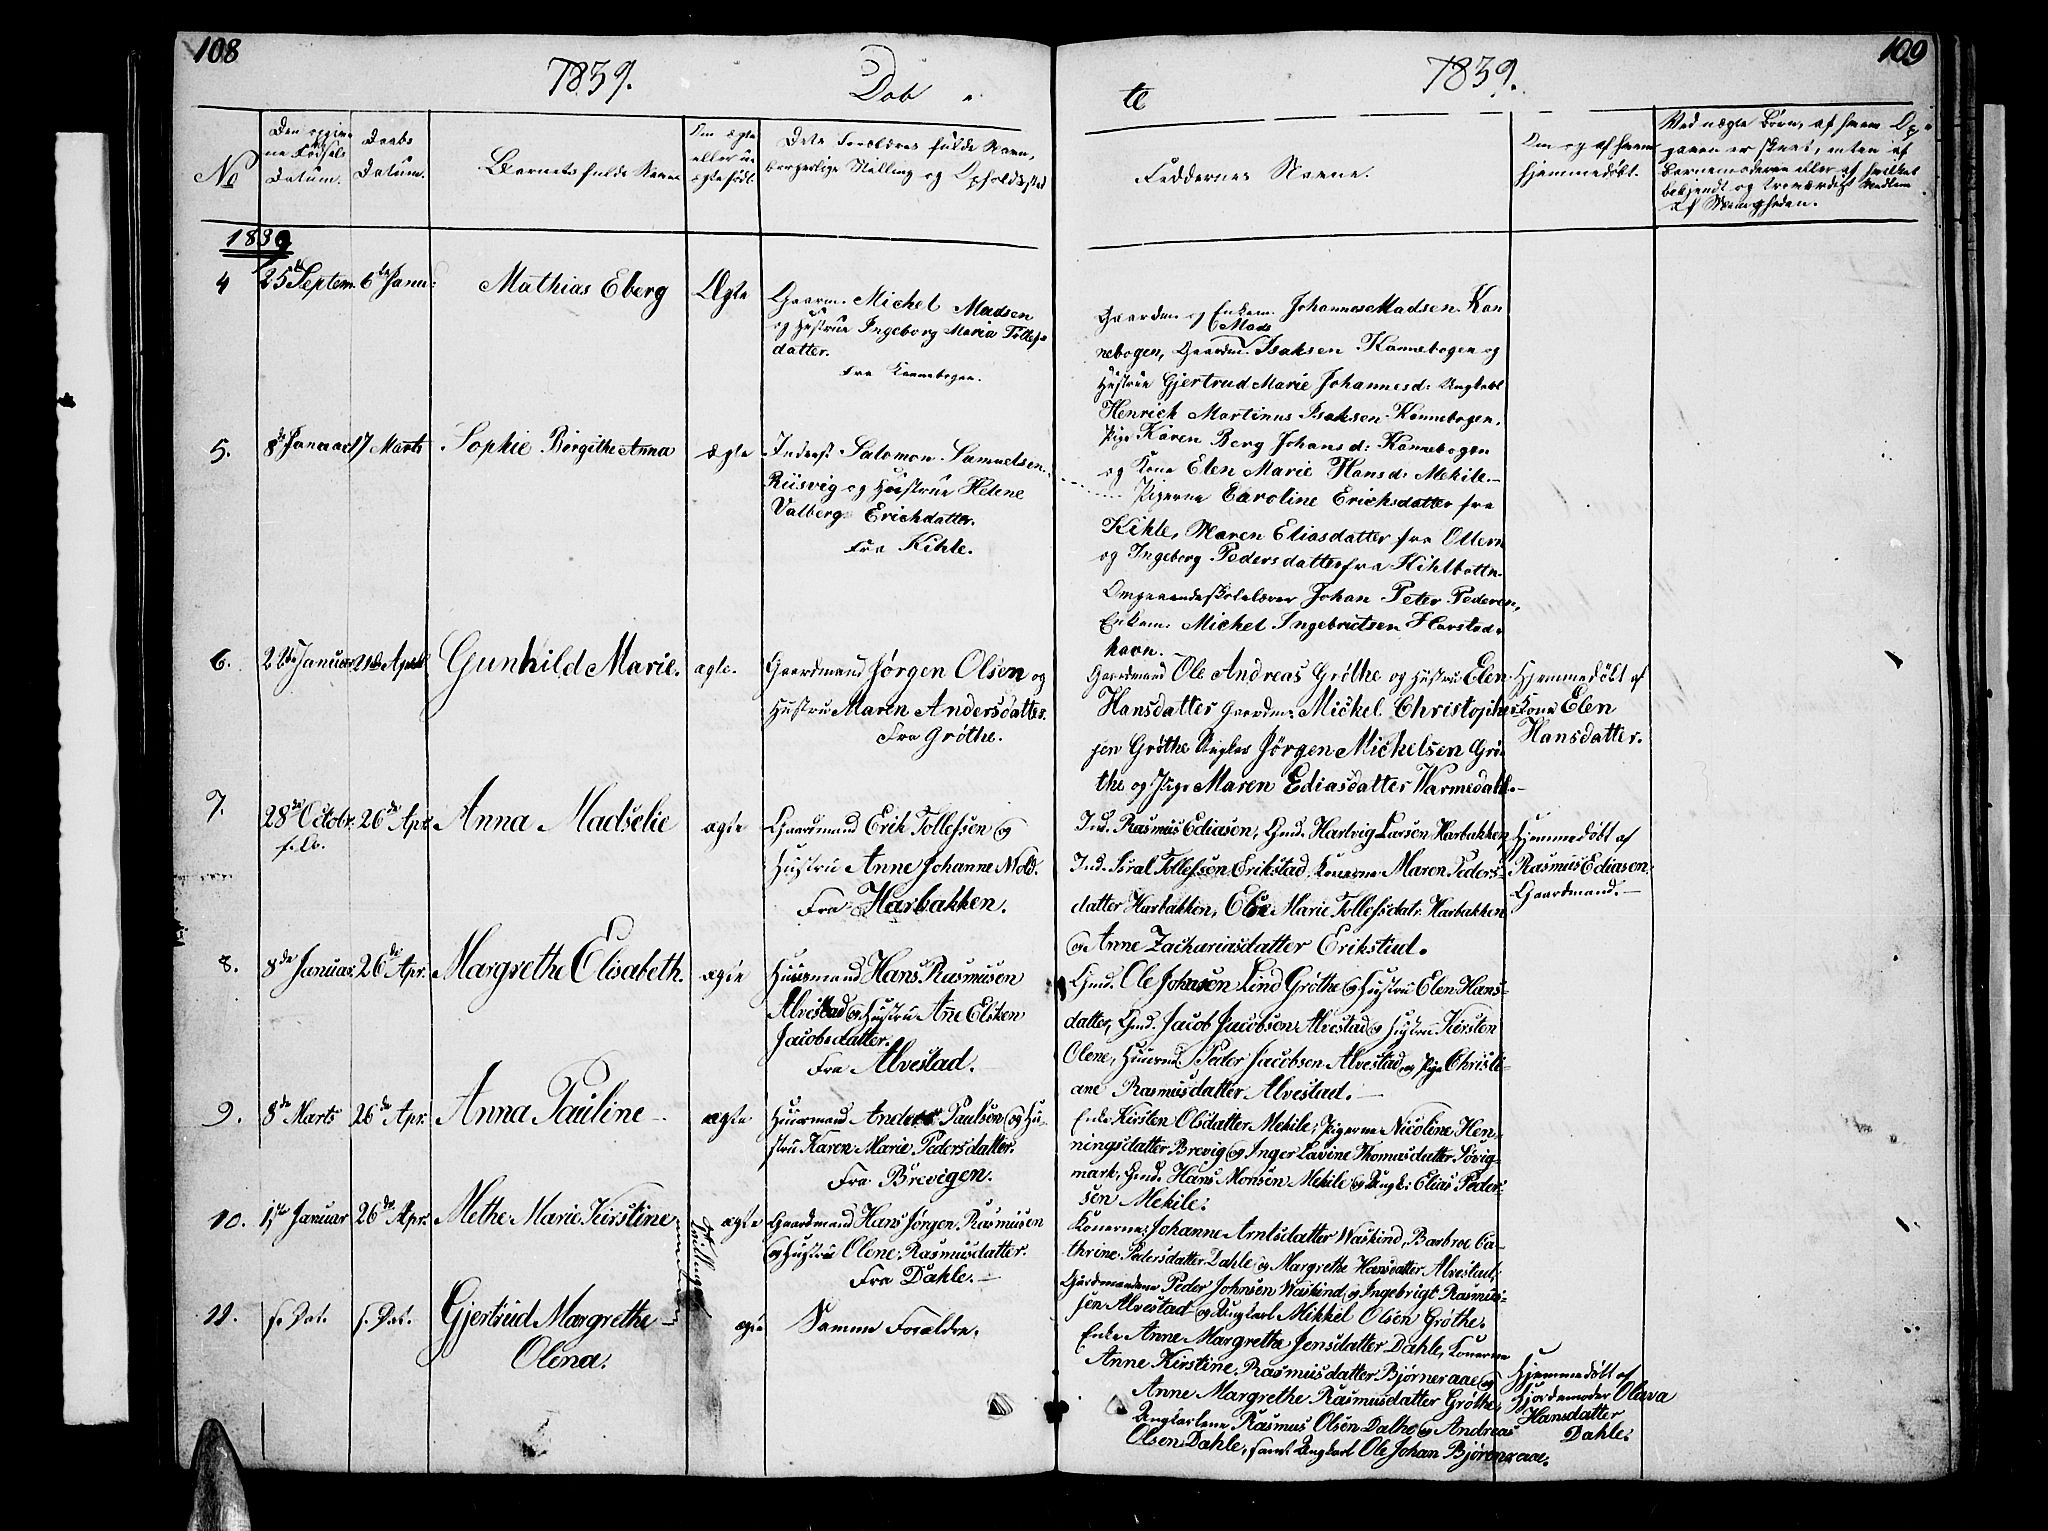 108
1839.
Døb
No
Den egne
ne Fødsels
Datum.
Daabs
Datum.
Barnets fulde Navn
Om ægte
eller u
ægte født.
Dets Forældres fulde Navn,
borgerlige Stilling og Opholdssted
1839
4
25de Septem.
6de Janu:
Mathias Eberg
Ægte
Gaarm. Michel Madsen
og Hustrue Ingeborg Maria Tollefs
datter.
Fra Kannebogen.
5.
8de Januar
17 Marts
Sophie Birgithe Anna
ægte
Inderst Salomon Samuelsen
Riisvig og Hustrue Helene
Valberg Erichdatter.
Fra Kihle.
6.
22de Januar
21de April
Gunhild Marie.
ægte.
Gaardmand Jørgen Olsen og
Hustru Maren Andersdatter.
Fra Grøthe.
7.
28de Octobr.
f. A.
26de Apr.
Anna Madselie
ægte
Gaardmand Erik Tollefsen og
Hustru Anne Johanne Nold.
Fra Harbakken.
8.
8de Januar
26de Apr.
Margrethe Elisabeth.
ægte
Huusmand Hans Rasmusen
Alvestad og Hustru Ane Elsken
Jacobsdatter.
Fra Alvestad.
9.
8de Marts
26de Apr.
Anna Pauline
ægte
Huusmand Anders Paulsen og Hu-
stru Karen Marie Pedersdatter.
Fra Brevigen.
10.
1ste Januar
26de Apr.
Methe Marie Kirstine
Tvillinger
ægte
Gaardmand Hans Jørgen Rasmusen
og Hustru Olene Rasmusdatter.
Fra Dahle.
11.
s. Dat.
s. Dat.
Gjertrud Margrethe
Olena.
ægte
Samme Forældre.
109
te
1839.
Faddernes Navne.
Om og af hvem
hjemmedøbt.
Ved uægte Børn, af hvem Op-
gaven er skeet, enten af
Barnemoderen eller af hvilket
bekjendt og troværdigt Medlem
af Menigheden.
Gaardm. og Enkem. Johannes Madsen Kan
Mads
nebogen, Gaardm. Isaksen Kannebogen og
Hustrue Gjertrud Marie Johannesd: Ungkarl
Henrich Martinus Isaksen Kannebogen,
Pige Karen Berg Johansd: Kannebogen
og Kone Elen Marie Hansd: Mekile.
Pigerne Caroline Erichsdatter fra
Kihle, Maren Eliasdatter fra Ottern
og Ingeborg Pedersdatter fra Kihlbottn.
Omgaaendeskolelærer Johan Peter Pedersen,
Enkem. Michel Ingebrictsen Harstad-
havn.
Gaardmand Ole Andreas Grøthe og Hustru Elen
Hansdatter Gaardm: Mickel Christopher
sen Grøthe Ungkar Jørgen Michelsen Grø
the og Pige Maren Ediasdatter Warmedahl.
Hjemmedøbt af
Kone Elen
Hansdatter.
Ind. Rasmus Ediasen, Gmd. Hartvig Larsen Harbakken,
Ind. Isral Tollefsen Erikstad, Konerne Maren Peders-
datter Harbakken, Else Marie Tollefsdatr. Harbakken
og Anne Zachariasdatter Erikstad.
Hjemmedøbt af
Rasmus Ediasen
Gaardmand.
Gmd. Ole Johnsen Lind Grøthe og Hustru Elen Hans-
datter, Gmd. Jacob Jacobsen Alvestad og Hustru Kirsten
Olene, Huusmd. Peder Jacobsen Alvestad og Pige Christi-
ane Rasmusdatter Alvestad.
Enke Kirsten Olsdatter Mekile, Pigerne Nicoline Hen-
ningsdatter Brevig og Inger Lavine Thomasdatter Søvig-
mark, Gmd. Hans Monsen Mekile og Ungk: Elias Peder-
sen Mekile.
Konerne: Johanne Arntsdatter Waskind, Barbroe Ca-
thrine Pedersdatter Dahle og Margrethe Hansdatter Alvestad;
Gaardmændene Peder Johnsen Waskind og Ingebrigt Rasmus-
sen Alvestad og Ungkarl Mikkel Olsen Grøthe.
Enke Anne Margrethe Jensdatter Dahle, Konerne
Anne Kirstine Rasmusdatter Bjørneraae og
Anne Margrethe Rasmusdatter Grøthe,
Ungkarlene Rasmus Olsen Dalhe og Andreas
Olsen Dahle, samt Ungkarl Ole Johan Bjørneraae.
Hjemmedøbt af
Gjordemoder Olava
Hansdatter
Dahle.